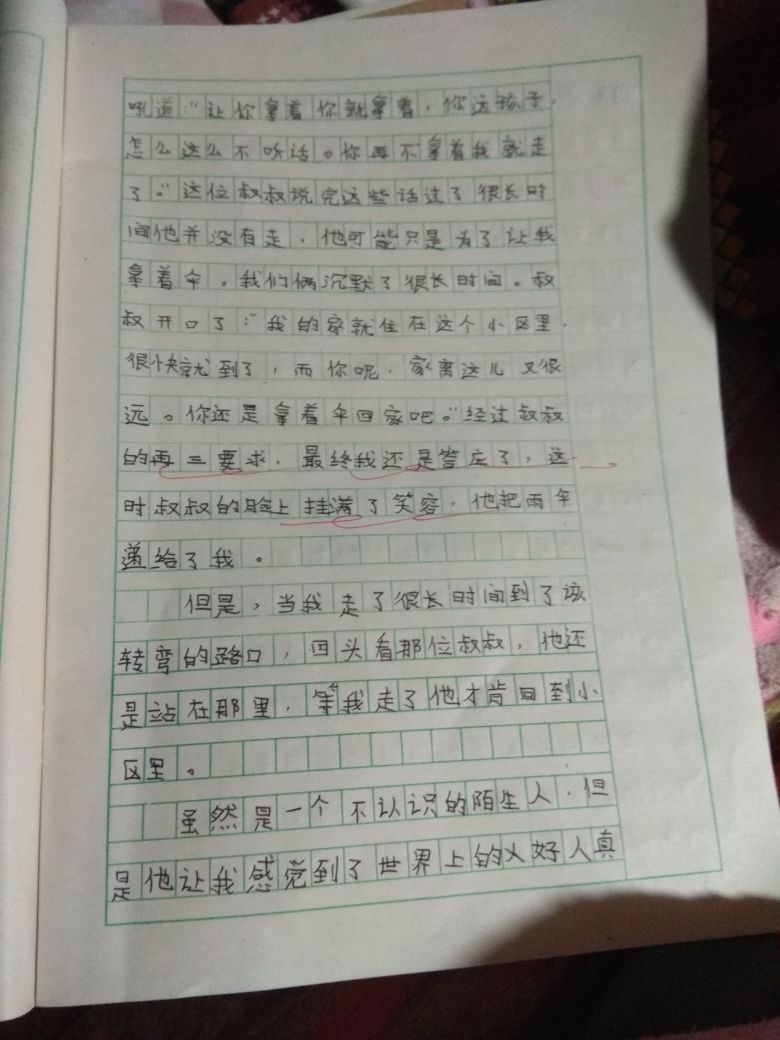 吼道："让你拿着你就拿着，你这孩子，
怎么这么不听话。你再不拿着我就走
了。"这位叔叔说完这些话过了很长时
间他并没有走，他可能只是为了让我
拿着伞。我们俩沉默了很长时间。叔
叔开口了："我的家就住在这个小区里，
很快就到了，而你呢，家离这儿又很
远。你还是拿着伞回家吧。"经过叔叔
的再三要求，最终我还是答应了，这
时叔叔的脸上挂满了笑容，他把雨伞
递给了我。
但是，当我走了很长时间到了该
转弯的路口，回头看那位叔叔，他还
是站在那里，等我走了他才肯回到小
区里。
虽然是一个不认识的陌生人，但
是他让我感觉到了世界上的好人真